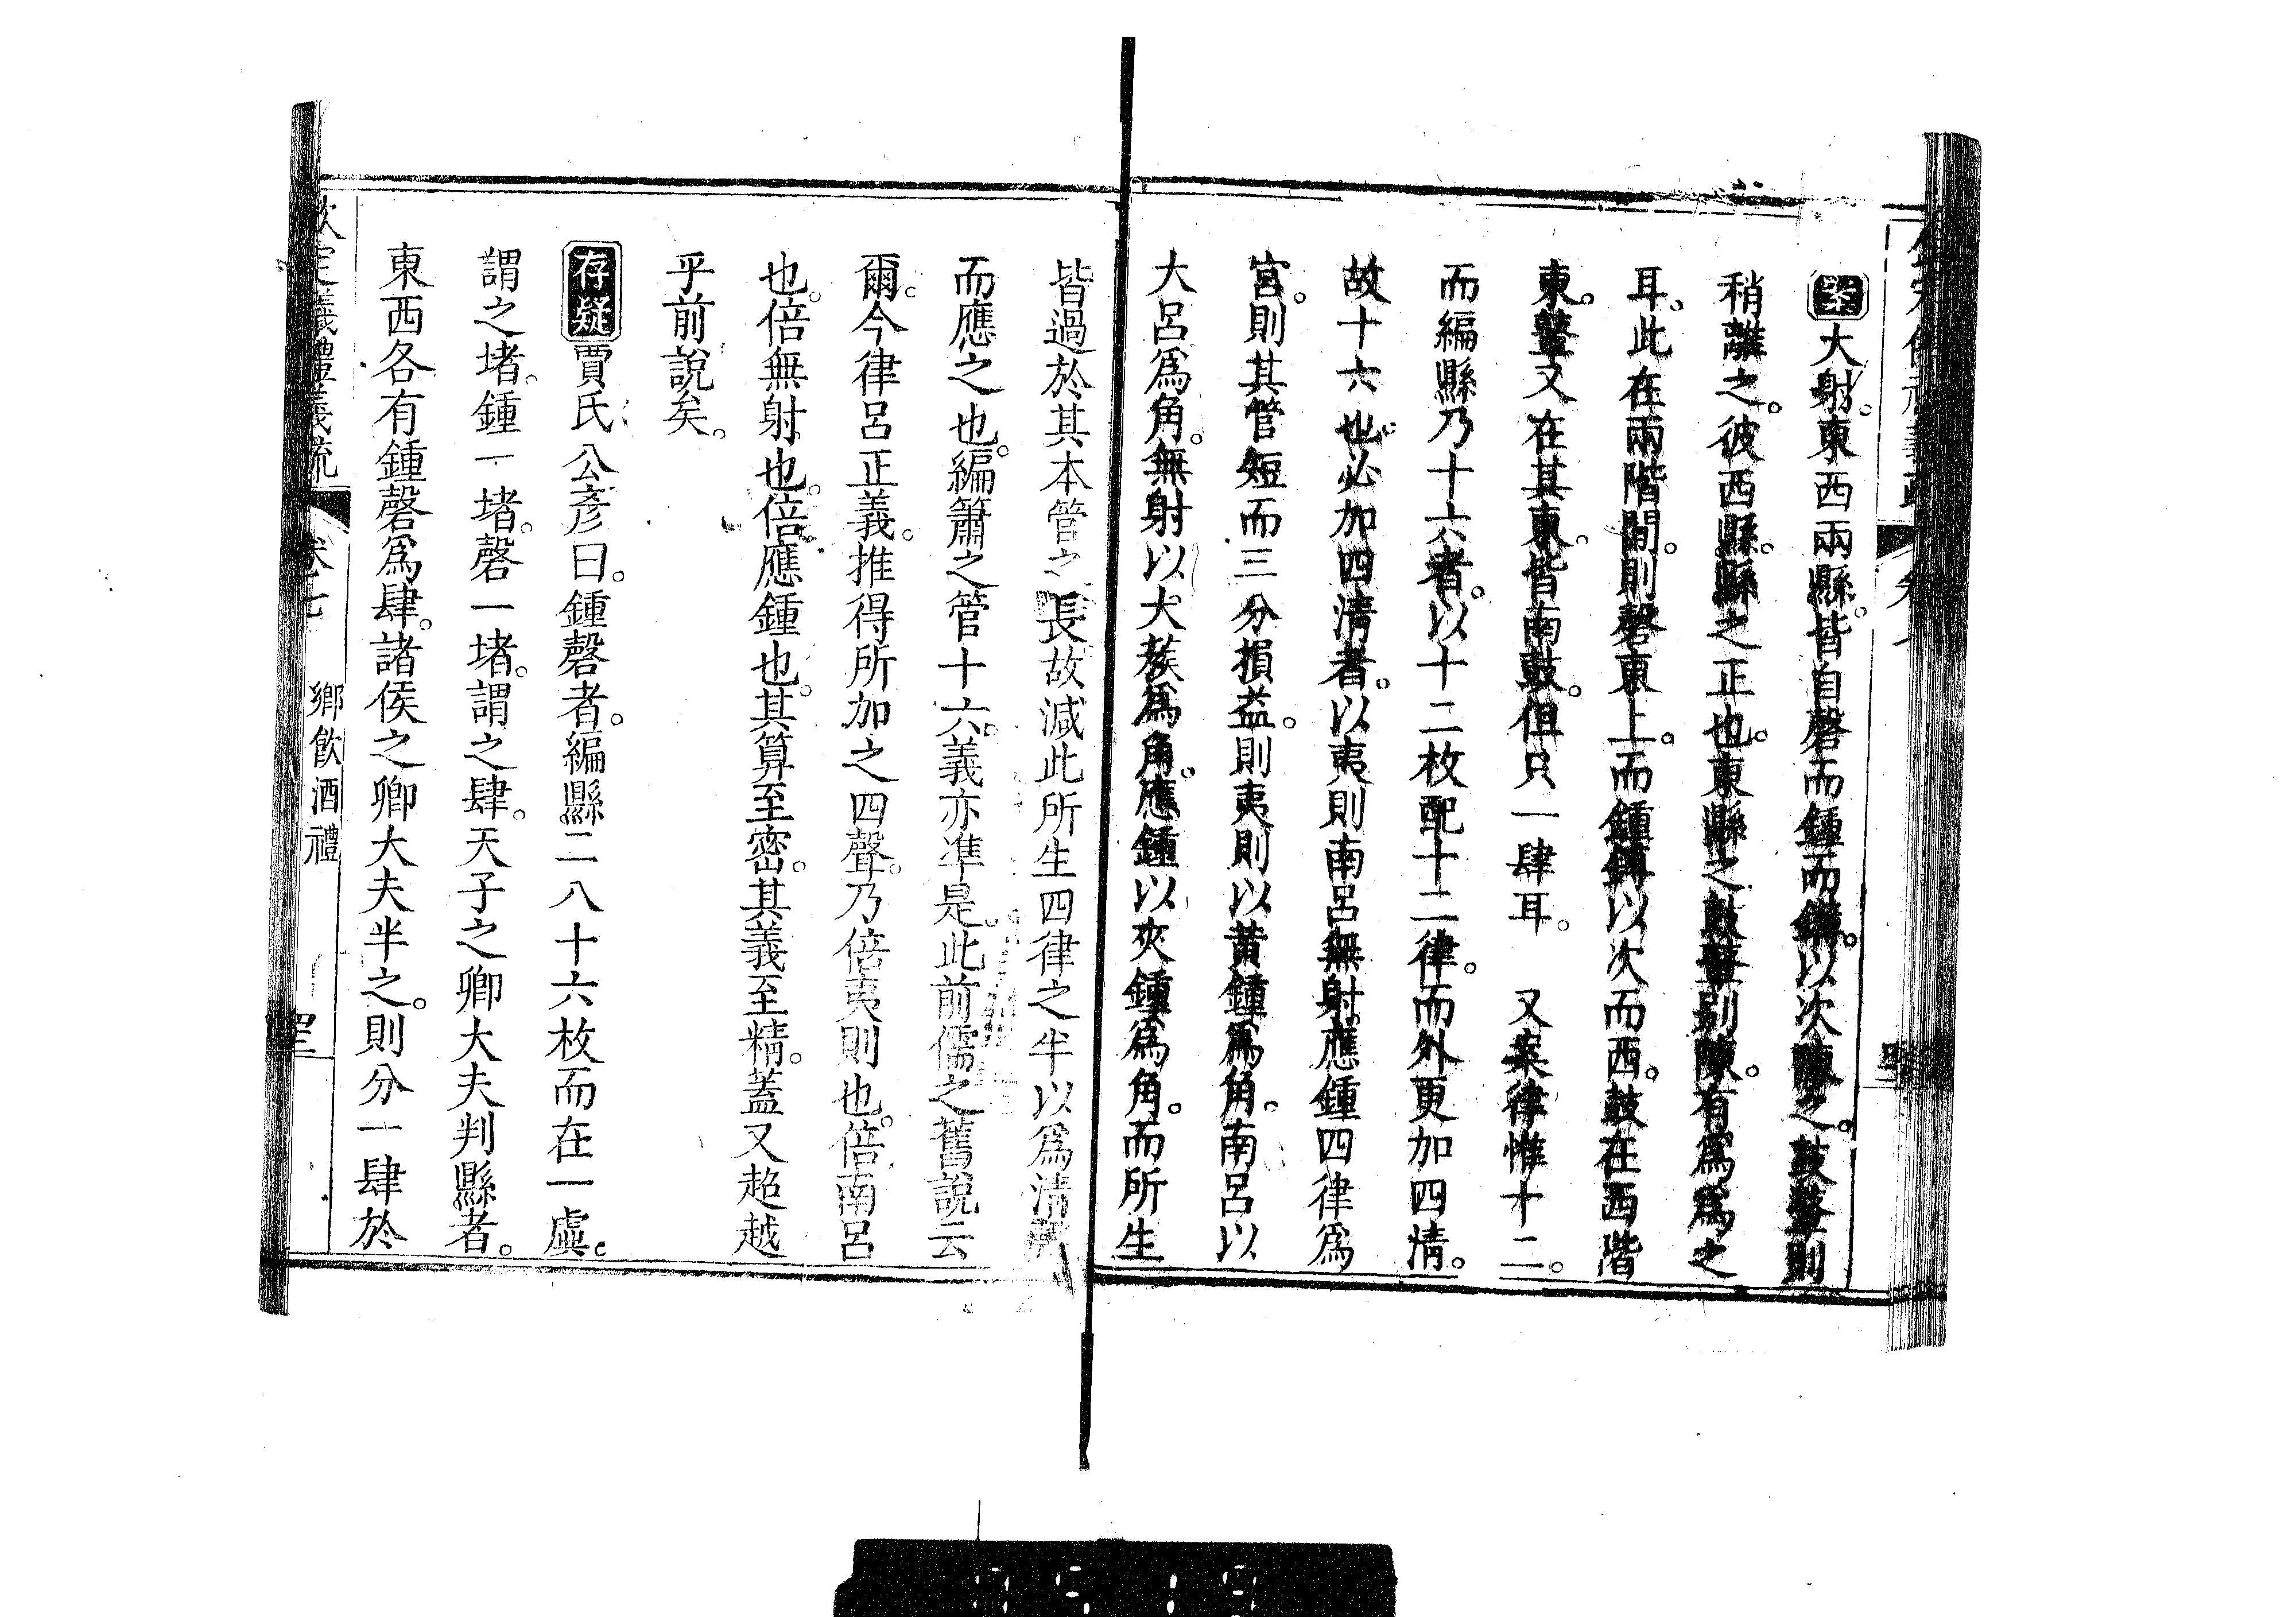 案大射。東西兩縣。皆自磬而鍾而鑮。以次陳之。鼓鼙則
稍離之。彼西縣。縣之正也。東縣之鼓鼙別陳。有爲爲之
耳。此在兩階閒。則磬東上。而鍾鑮以次而西。鼓在西階
東。鼙又在其東。皆南鼓。但只一肆耳。 又案律惟十二。
而編縣乃十六者。以十二枚配十二律。而外更加四清。
故十六也。必加四清者。以夷則南呂無射應鍾四律爲
宮。則其管短而三分損益。則夷則以黃鍾爲角。南呂以
大呂爲角。無射以大蔟爲角。應鍾以夾鍾爲角。而所生
皆過於其本管之長故減此所生四律之半以爲清聲
而應之也。編簫之管十六。義亦準是。此前儒之舊說云
爾。今律呂正義。推得所加之四聲。乃倍夷則也。倍南呂
也。倍無射也。倍應鍾也。其算至密。其義至精。蓋又超越
乎前說矣。
存疑賈氏公彥曰。鍾磬者。編縣二八十六枚而在一虡。
謂之堵。鍾一堵。磬一堵。謂之肆。天子之卿大夫判縣者。
東西各有鍾磬爲肆。諸侯之卿大夫半之。則分一肆於
欽定儀禮義疏 卷七 鄉飲酒禮